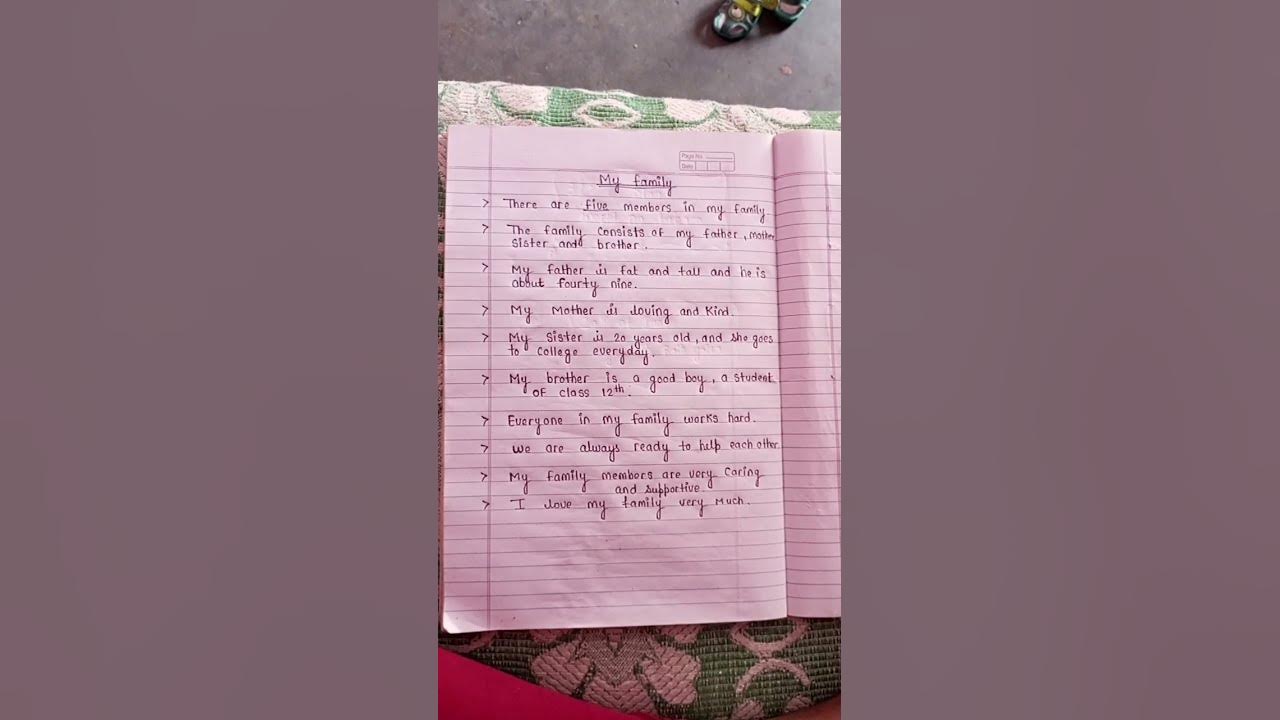 Page No.
Date
My family
> There are five members in my family
> The family consists of my father, mother
sister and brother.
> My father is fat and tall and he is
about fourty nine.
> My Mother is loving and Kind.
> My sister is 20 years old, and she goes
to College everyday.
> My brother is a good boy, a student
OF class 12th.
> Everyone in my family works hard.
> we are always ready to help each other
> My family members are very Caring
and supportive.
> I love my family very Much.